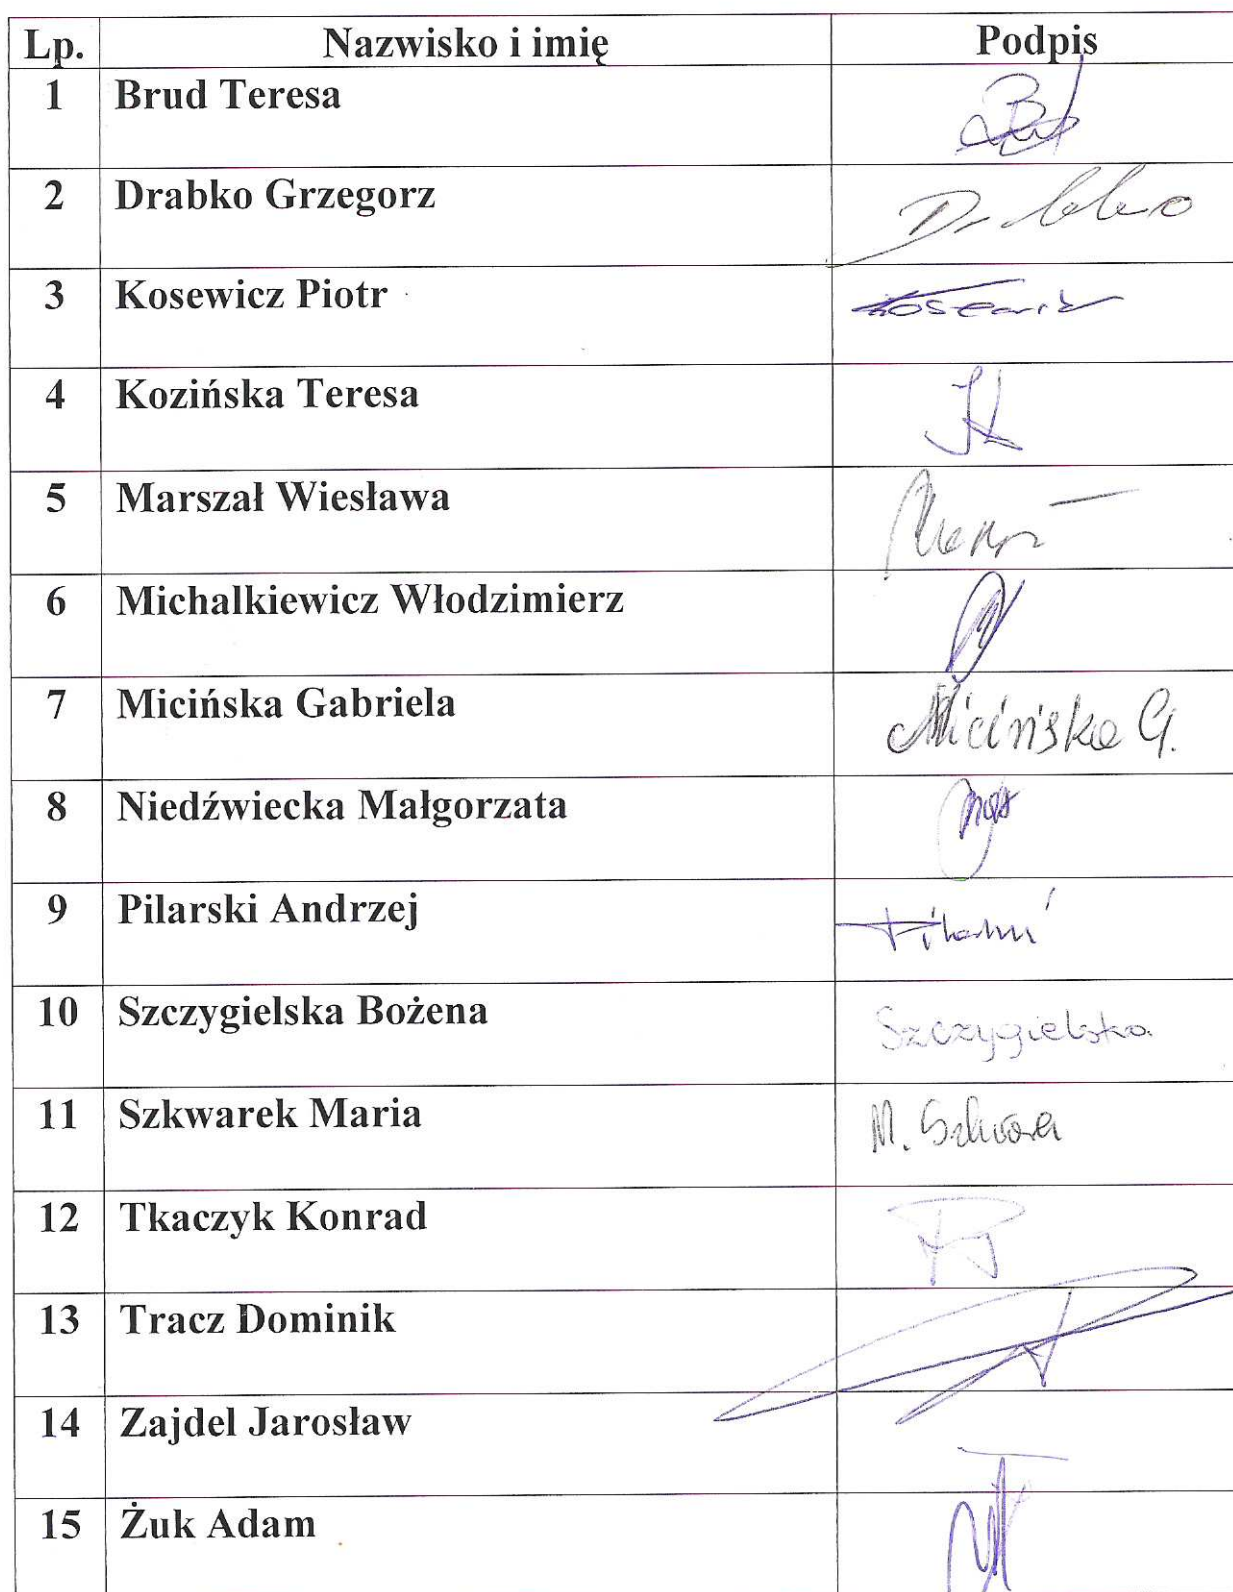 Lp. Nazwisko i imię Podpis
1 Brud Teresa
2 Drabko Grzegorz
3 Kosewicz Piotr
4 Kozińska Teresa
5 Marszał Wiesława
6 Michalkiewicz Włodzimierz
7 Micińska Gabriela Micińska G.
8 Niedźwiecka Małgorzata
9 Pilarski Andrzej
10 Szczygielska Bożena Szczygielska
11 Szkwarek Maria M.
12 Tkaczyk Konrad
13 Tracz Dominik
14 Zajdel Jarosław
15 Żuk Adam